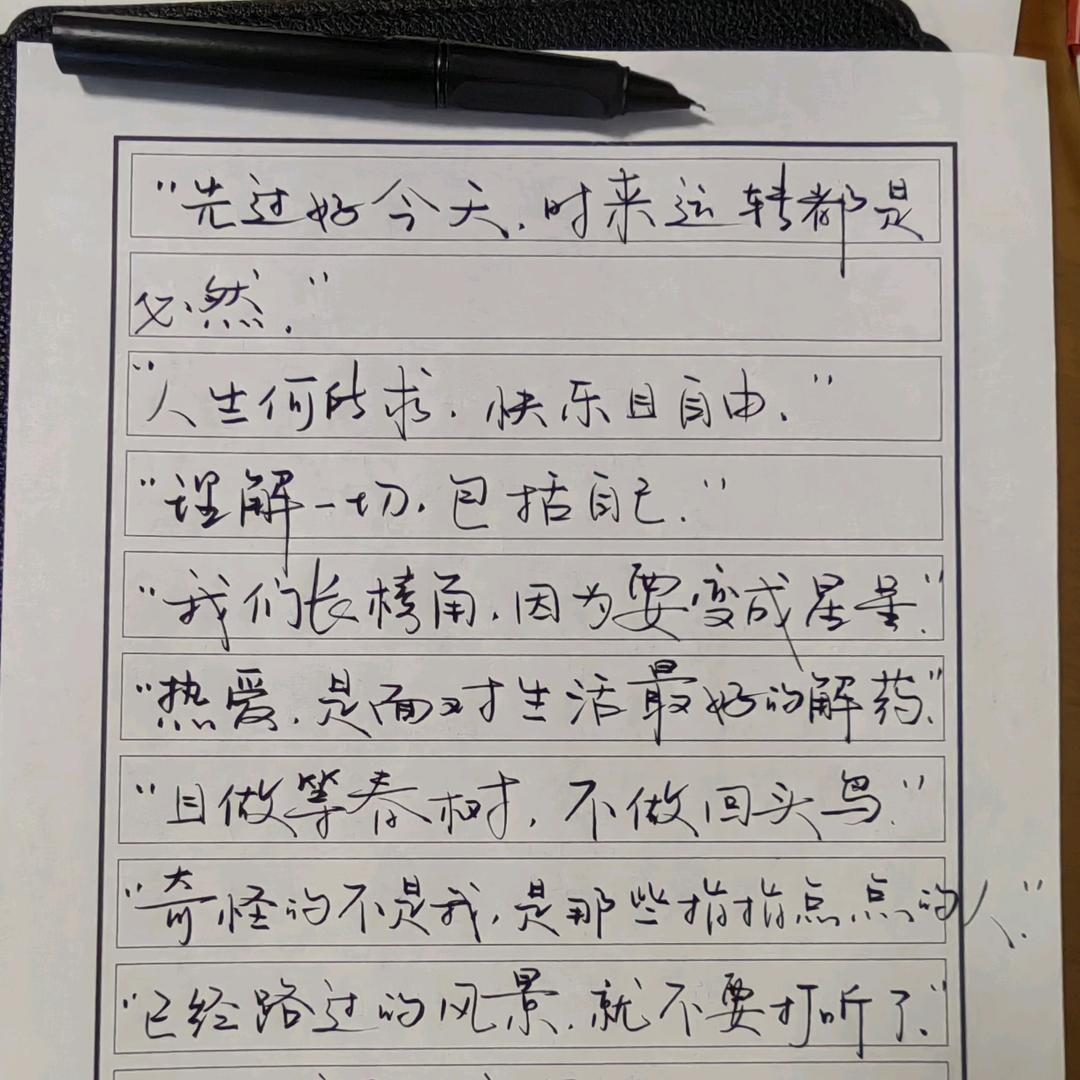 “先过好今天,时来运转都是
必然.”
“人生何所求.快乐且自由.”
“理解一切.包括自己.”
“我们长棱角,因为要变成星星.”
“热爱.是面对生活最好的解药.”
“且做等春树,不做回头鸟.”
“奇怪的不是我,是那些指指点点的人.”
“已经路过的风景.就不要打听了.”